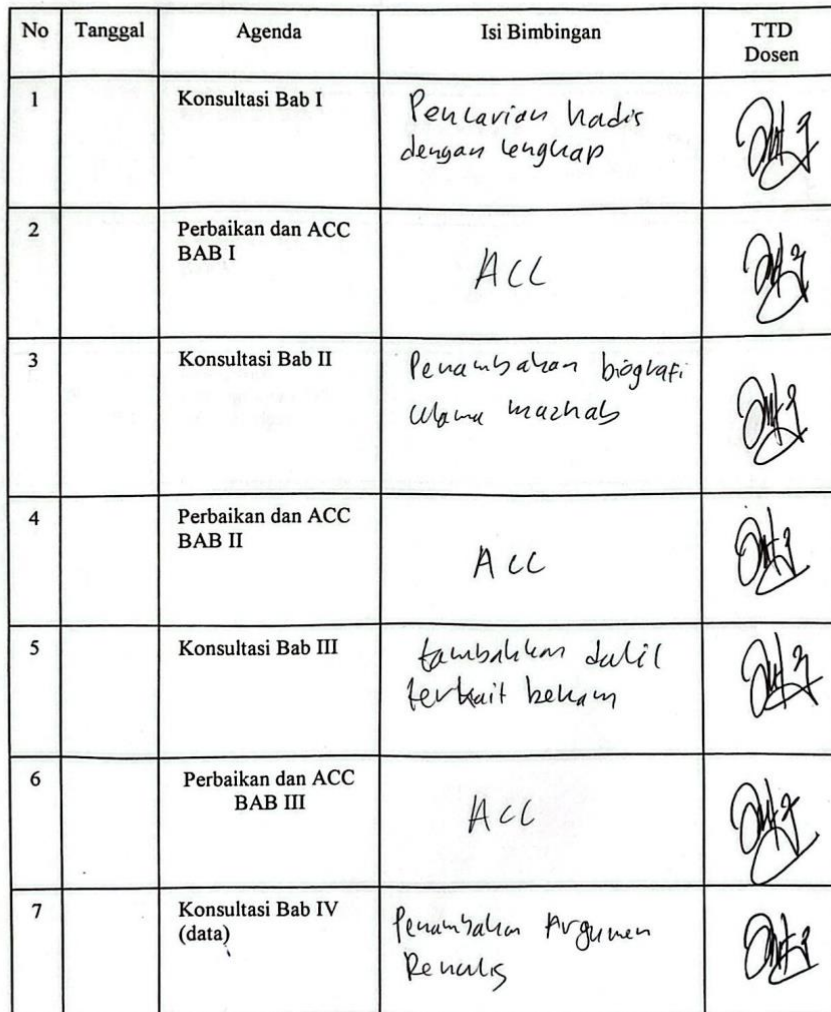 No Tanggal Agenda Isi Bimbingan TTD
Dosen
1 Konsultasi Bab I Pencarian hadis
dengan lengkap
2 Perbaikan dan ACC
BAB I
ACC
3 Konsultasi Bab II Penambahan biografi
ulama mazhab
4 Perbaikan dan ACC
BAB II
ACC
5 Konsultasi Bab III tambahkan dalil
terkait bekam
6 Perbaikan dan ACC
BAB III
ACC
7 Konsultasi Bab IV
(data)
Penambahan Argumen
Penulis